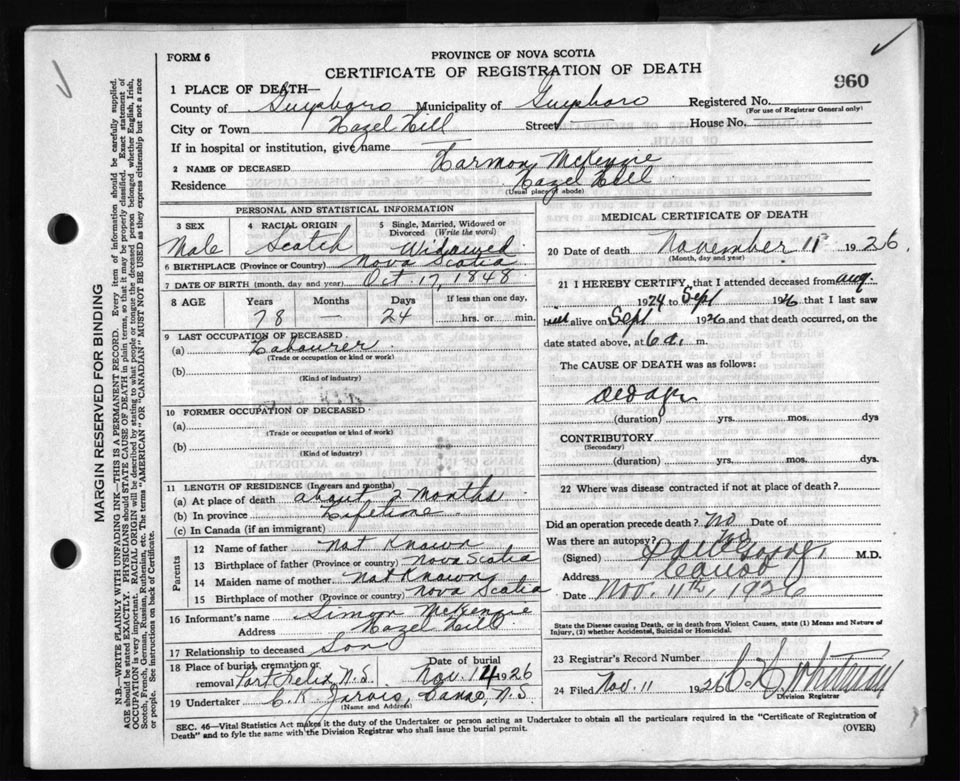 FORM 6
PROVINCE OF NOVA SCOTIA
CERTIFICATE OF REGISTRATION OF DEATH
960
1 PLACE OF DEATH—
County of Guysboro Municipality of Guysboro Registered No.
(For use of Registrar General only)
City or Town Hazel Hill Street House No.
If in hospital or institution, give name
2 NAME OF DECEASED Harmon McKenzie
Residence Hazel Hill
(Usual place of abode)
PERSONAL AND STATISTICAL INFORMATION
3 SEX 4 RACIAL ORIGIN 5 Single, Married, Widowed or Divorced (Write the word)
Male Scotch Widowed
6 BIRTHPLACE (Province or Country) Nova Scotia
7 DATE OF BIRTH (month, day and year) Oct. 17, 1848
8 AGE Years Months Days If less than one day,
78 — 24 hrs. or min.
9 LAST OCCUPATION OF DECEASED
(a) Labourer
(Trade or occupation or kind or work)
(b)
(Kind of industry)
10 FORMER OCCUPATION OF DECEASED
(a)
(Trade or occupation or kind of work)
(b)
(Kind of industry)
11 LENGTH OF RESIDENCE (In years and months)
(a) At place of death about 2 months
(b) In province Lifetime
(c) In Canada (if an immigrant)
Parents
12 Name of father Not Known
13 Birthplace of father (Province or Country) Nova Scotia
14 Maiden name of mother Not Known
15 Birthplace of mother (Province or Country) Nova Scotia
16 Informant's name Simon McKenzie
Address Hazel Hill
17 Relationship to deceased Son
18 Place of burial, cremation or removal Port Felix, N.S. Date of burial Nov. 14 1926
19 Undertaker C. K. Jarvis, Canso, N.S.
(Name and Address)
MEDICAL CERTIFICATE OF DEATH
20 Date of death November 11 1926.
(Month, day and year)
21 I HEREBY CERTIFY, that I attended deceased from Aug.
1924 to Sept 1926 that I last saw
him alive on Sept 1926 and that death occurred, on the
date stated above, at 6 a. m.
The CAUSE OF DEATH was as follows:
Old age
(duration) yrs. mos. dys
CONTRIBUTORY
(Secondary)
(duration) yrs. mos. dys.
22 Where was disease contracted if not at place of death?
Did an operation precede death? No Date of
Was there an autopsy? No
(Signed) M.D.
Address Canso
Date Nov. 11th, 1926
State the Disease causing Death, or in death from Violent Causes, state (1) Means and Nature of
Injury, (2) whether Accidental, Suicidal or Homicidal.
23 Registrar's Record Number
24 Filed Nov. 11 1926
Division Registrar
SEC. 46—Vital Statistics Act makes it the duty of the Undertaker or person acting as Undertaker to obtain all the particulars required in the "Certificate of Registration of
Death" and to fyle the same with the Division Registrar who shall issue the burial permit.
(OVER)
MARGIN RESERVED FOR BINDING
N.B.—WRITE PLAINLY WITH UNFADING INK—THIS IS A PERMANENT RECORD. Every item of information should be carefully supplied.
AGE should be stated EXACTLY. PHYSICIANS should STATE CAUSE OF DEATH in plain terms, so that it may be properly classified. Exact statement of
OCCUPATION is very important. RACIAL ORIGIN will be described by stating to what people or tongue the deceased person belonged whether English, Irish,
Scotch, French, German, Russian, Ruthenian, etc. The terms "AMERICAN" OR "CANADIAN" MUST NOT BE USED as they express citizenship but not a race
or people. See instructions on back of Certificate.